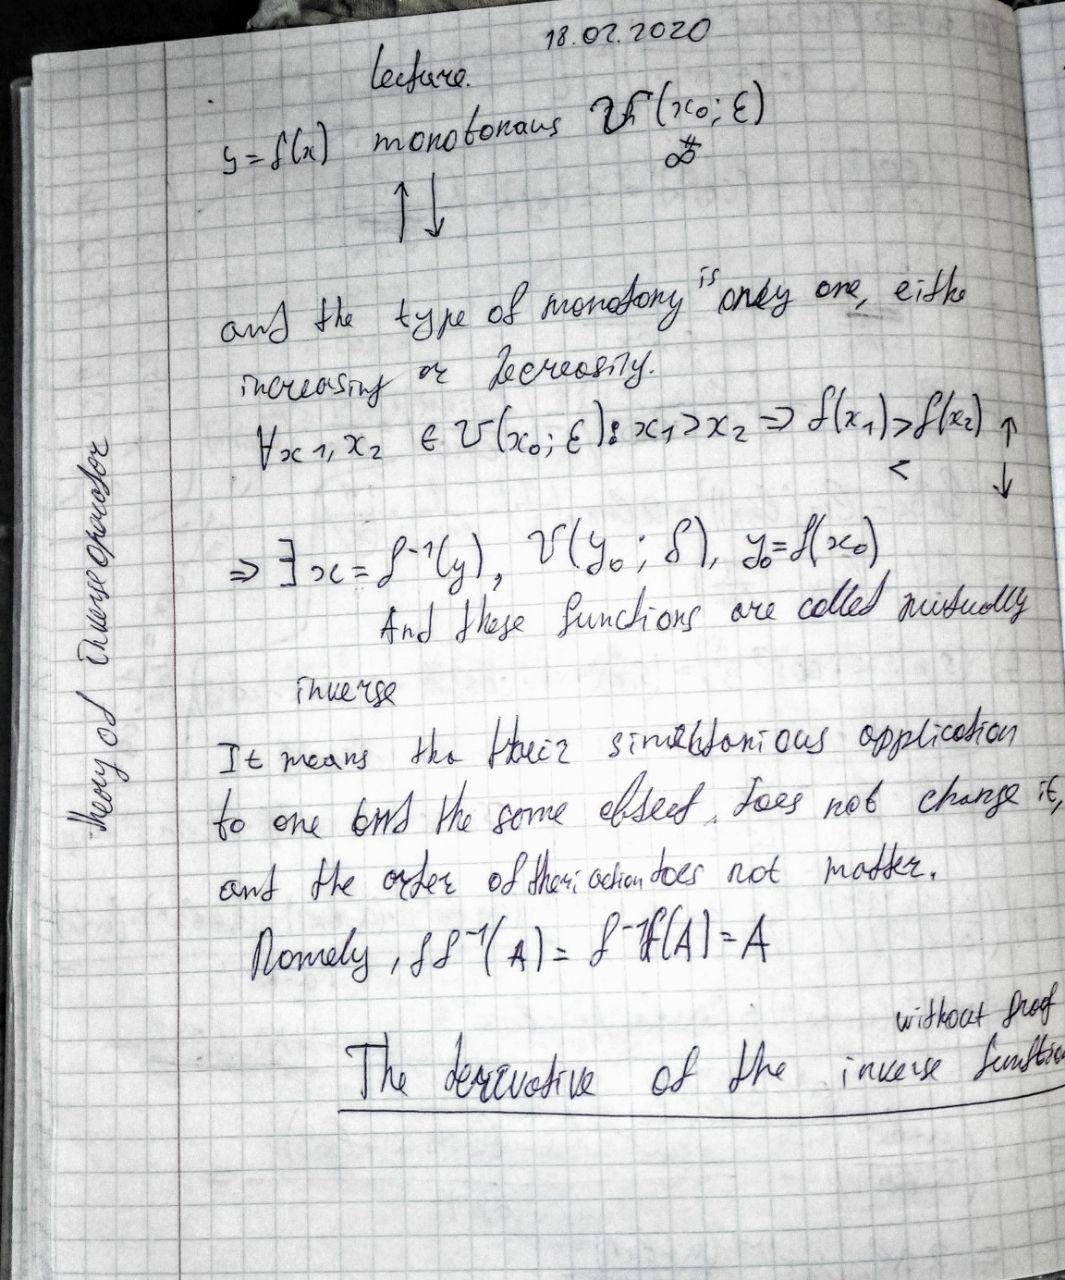 18.02.2020
Lecture.
y = f(x) monotonous U(x₀; ε)
≠
∞
↑ ↓
and the type of monotony is only one, eithe
increasing or decreasily.
∀x1, x2 ∈ U(x₀; ε): x1 > x2 ⇒ f(x1) > f(x2) ↑
< ↓
⇒ ∃ x = f⁻¹(y), U(y₀; δ), y₀ = f(x₀)
And these functions are called mutually
inverse
It means tha their application
to one and the same object does not change it,
and the order of their action does not matter.
Namely, f f⁻¹(A) = f⁻¹f(A) = A
without proof
The derivative of the inverse function
theory of inverse operator